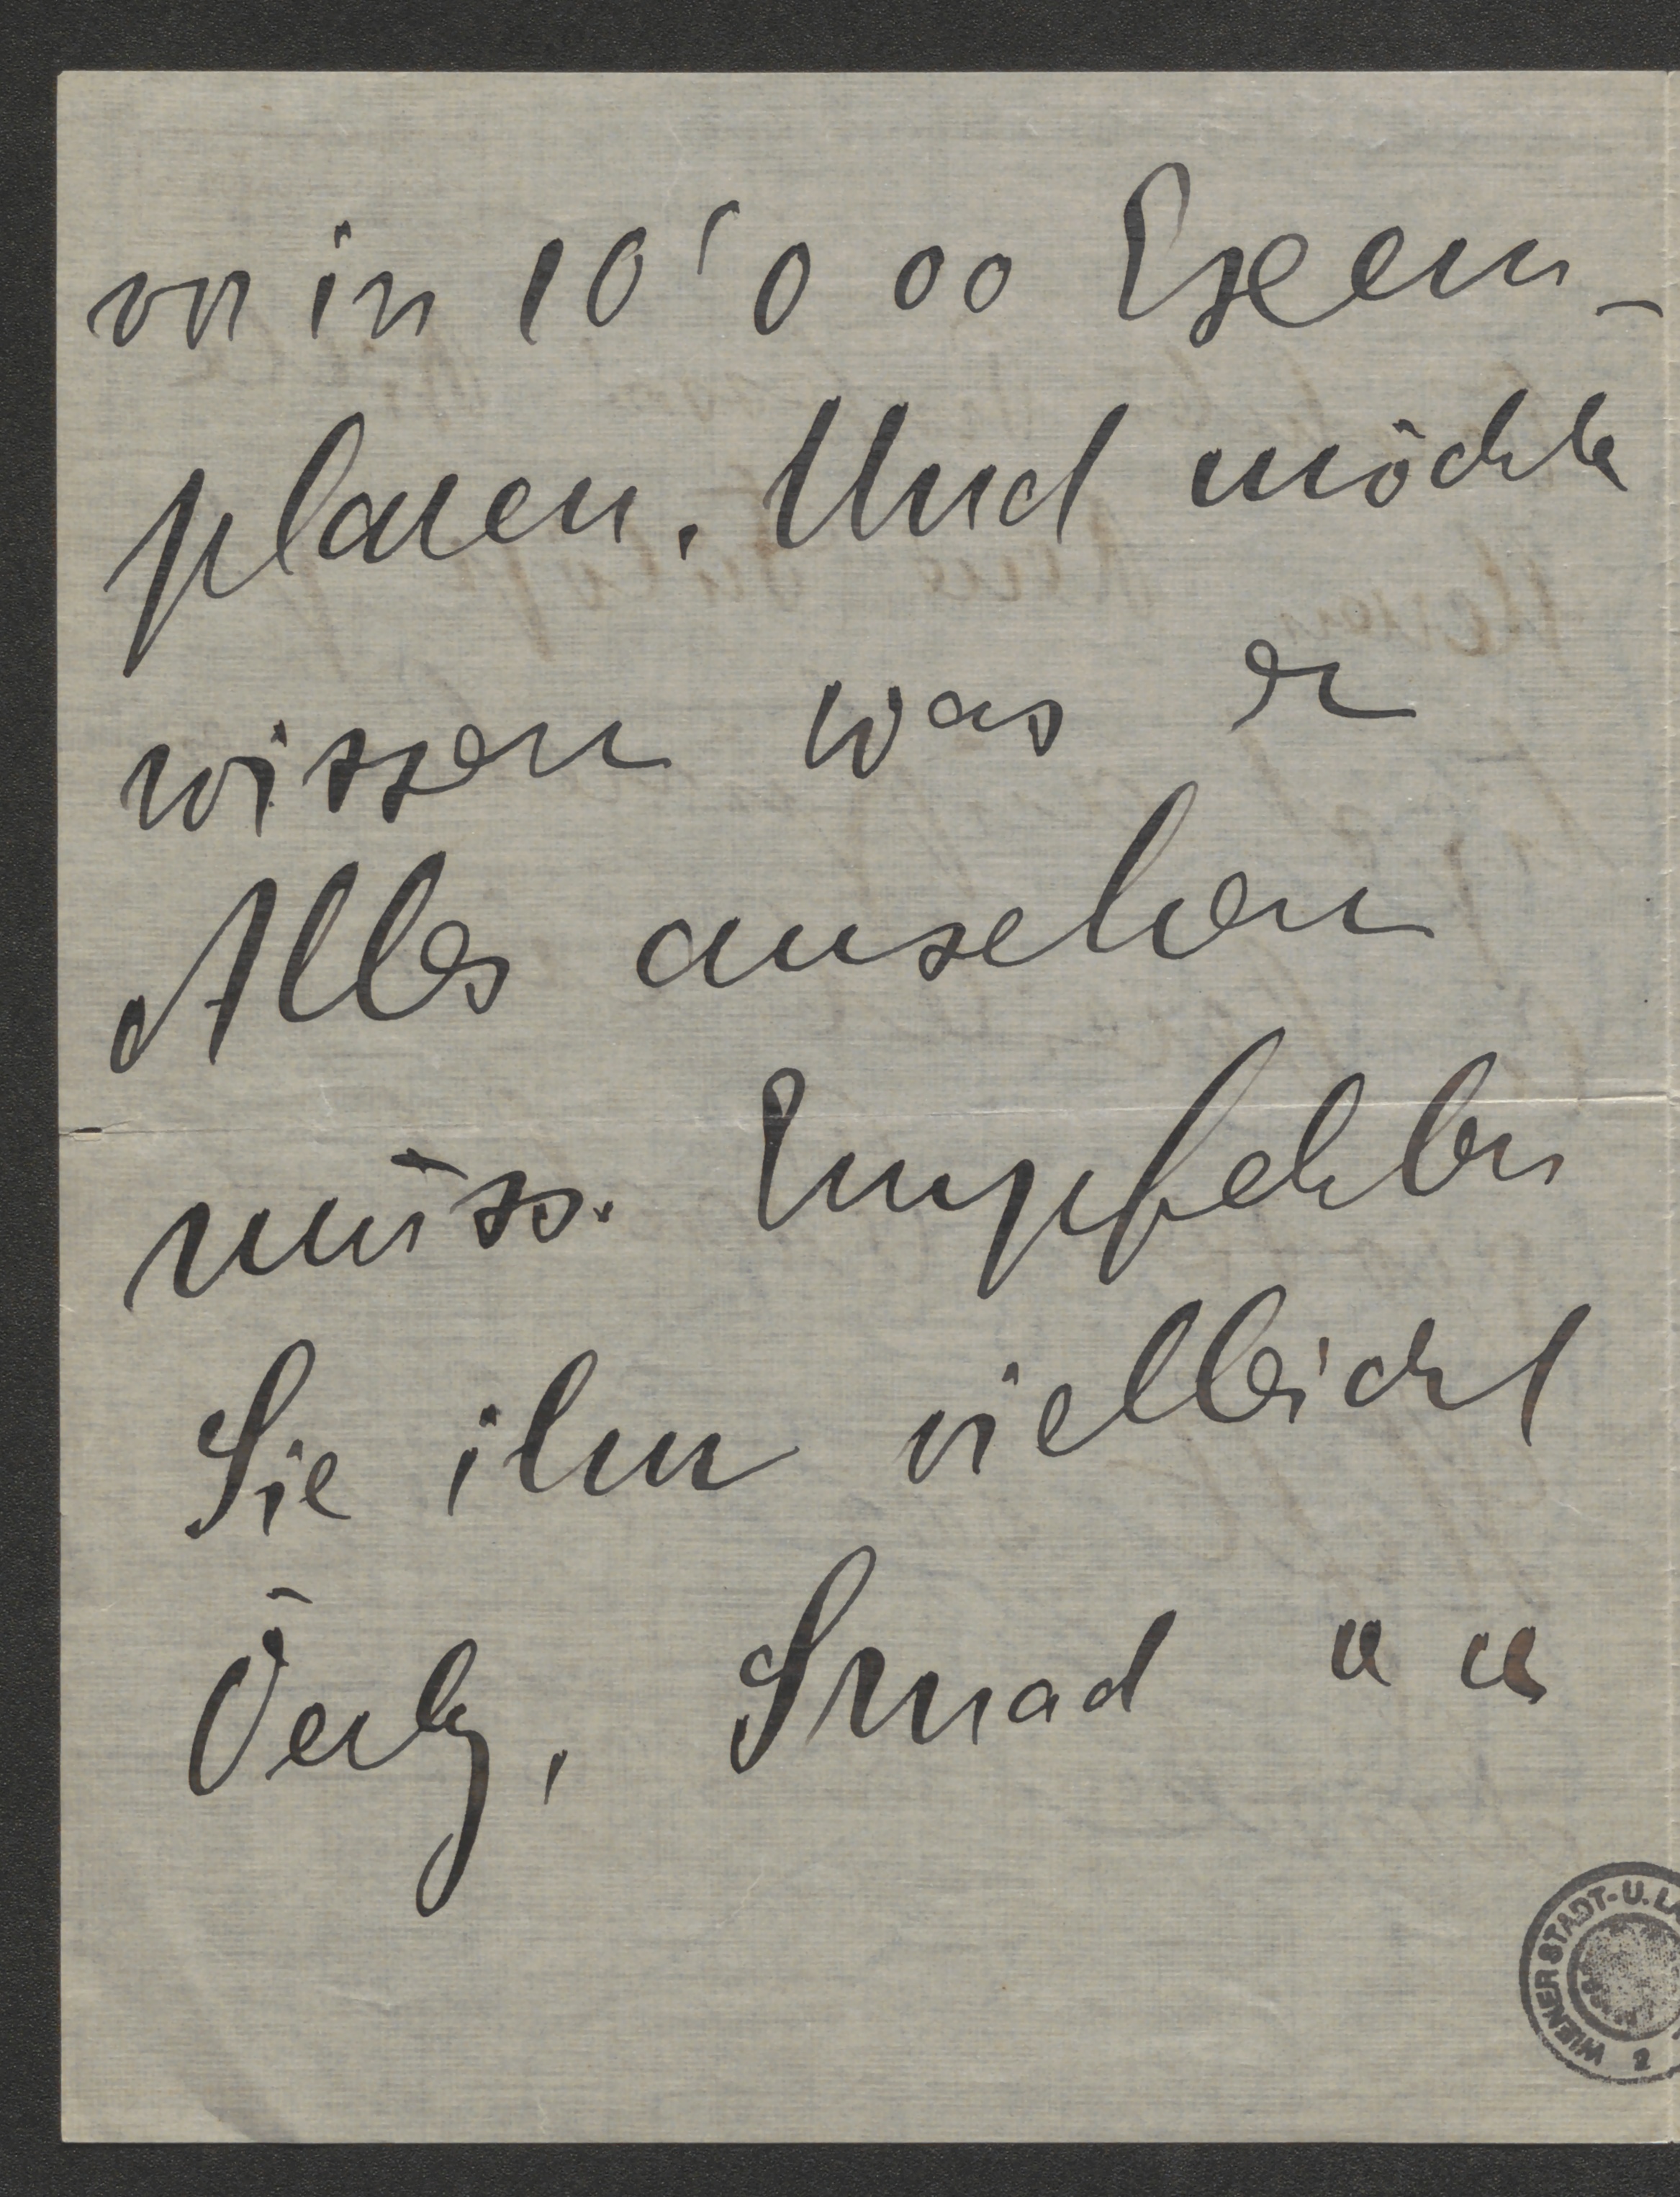 vor in 10'000 Exem-
plaren. Und möchte
wissen was er
Alles ansehen
muss. Empfehlen
Sie ihm vielleicht
Oerley, Strnad " "
WIENER STADT-U.LA
2